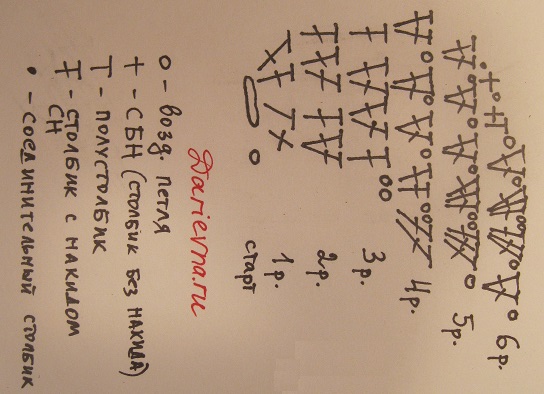 6 р.
5 р.
4 р.
3 р.
2 р.
1 р.
старт
Darievna.ru
о - возд. петля
+ - СБН (столбик без накида)
Т - полустолбик
Ŧ - столбик с накидом
СН
• - соединительный столбик